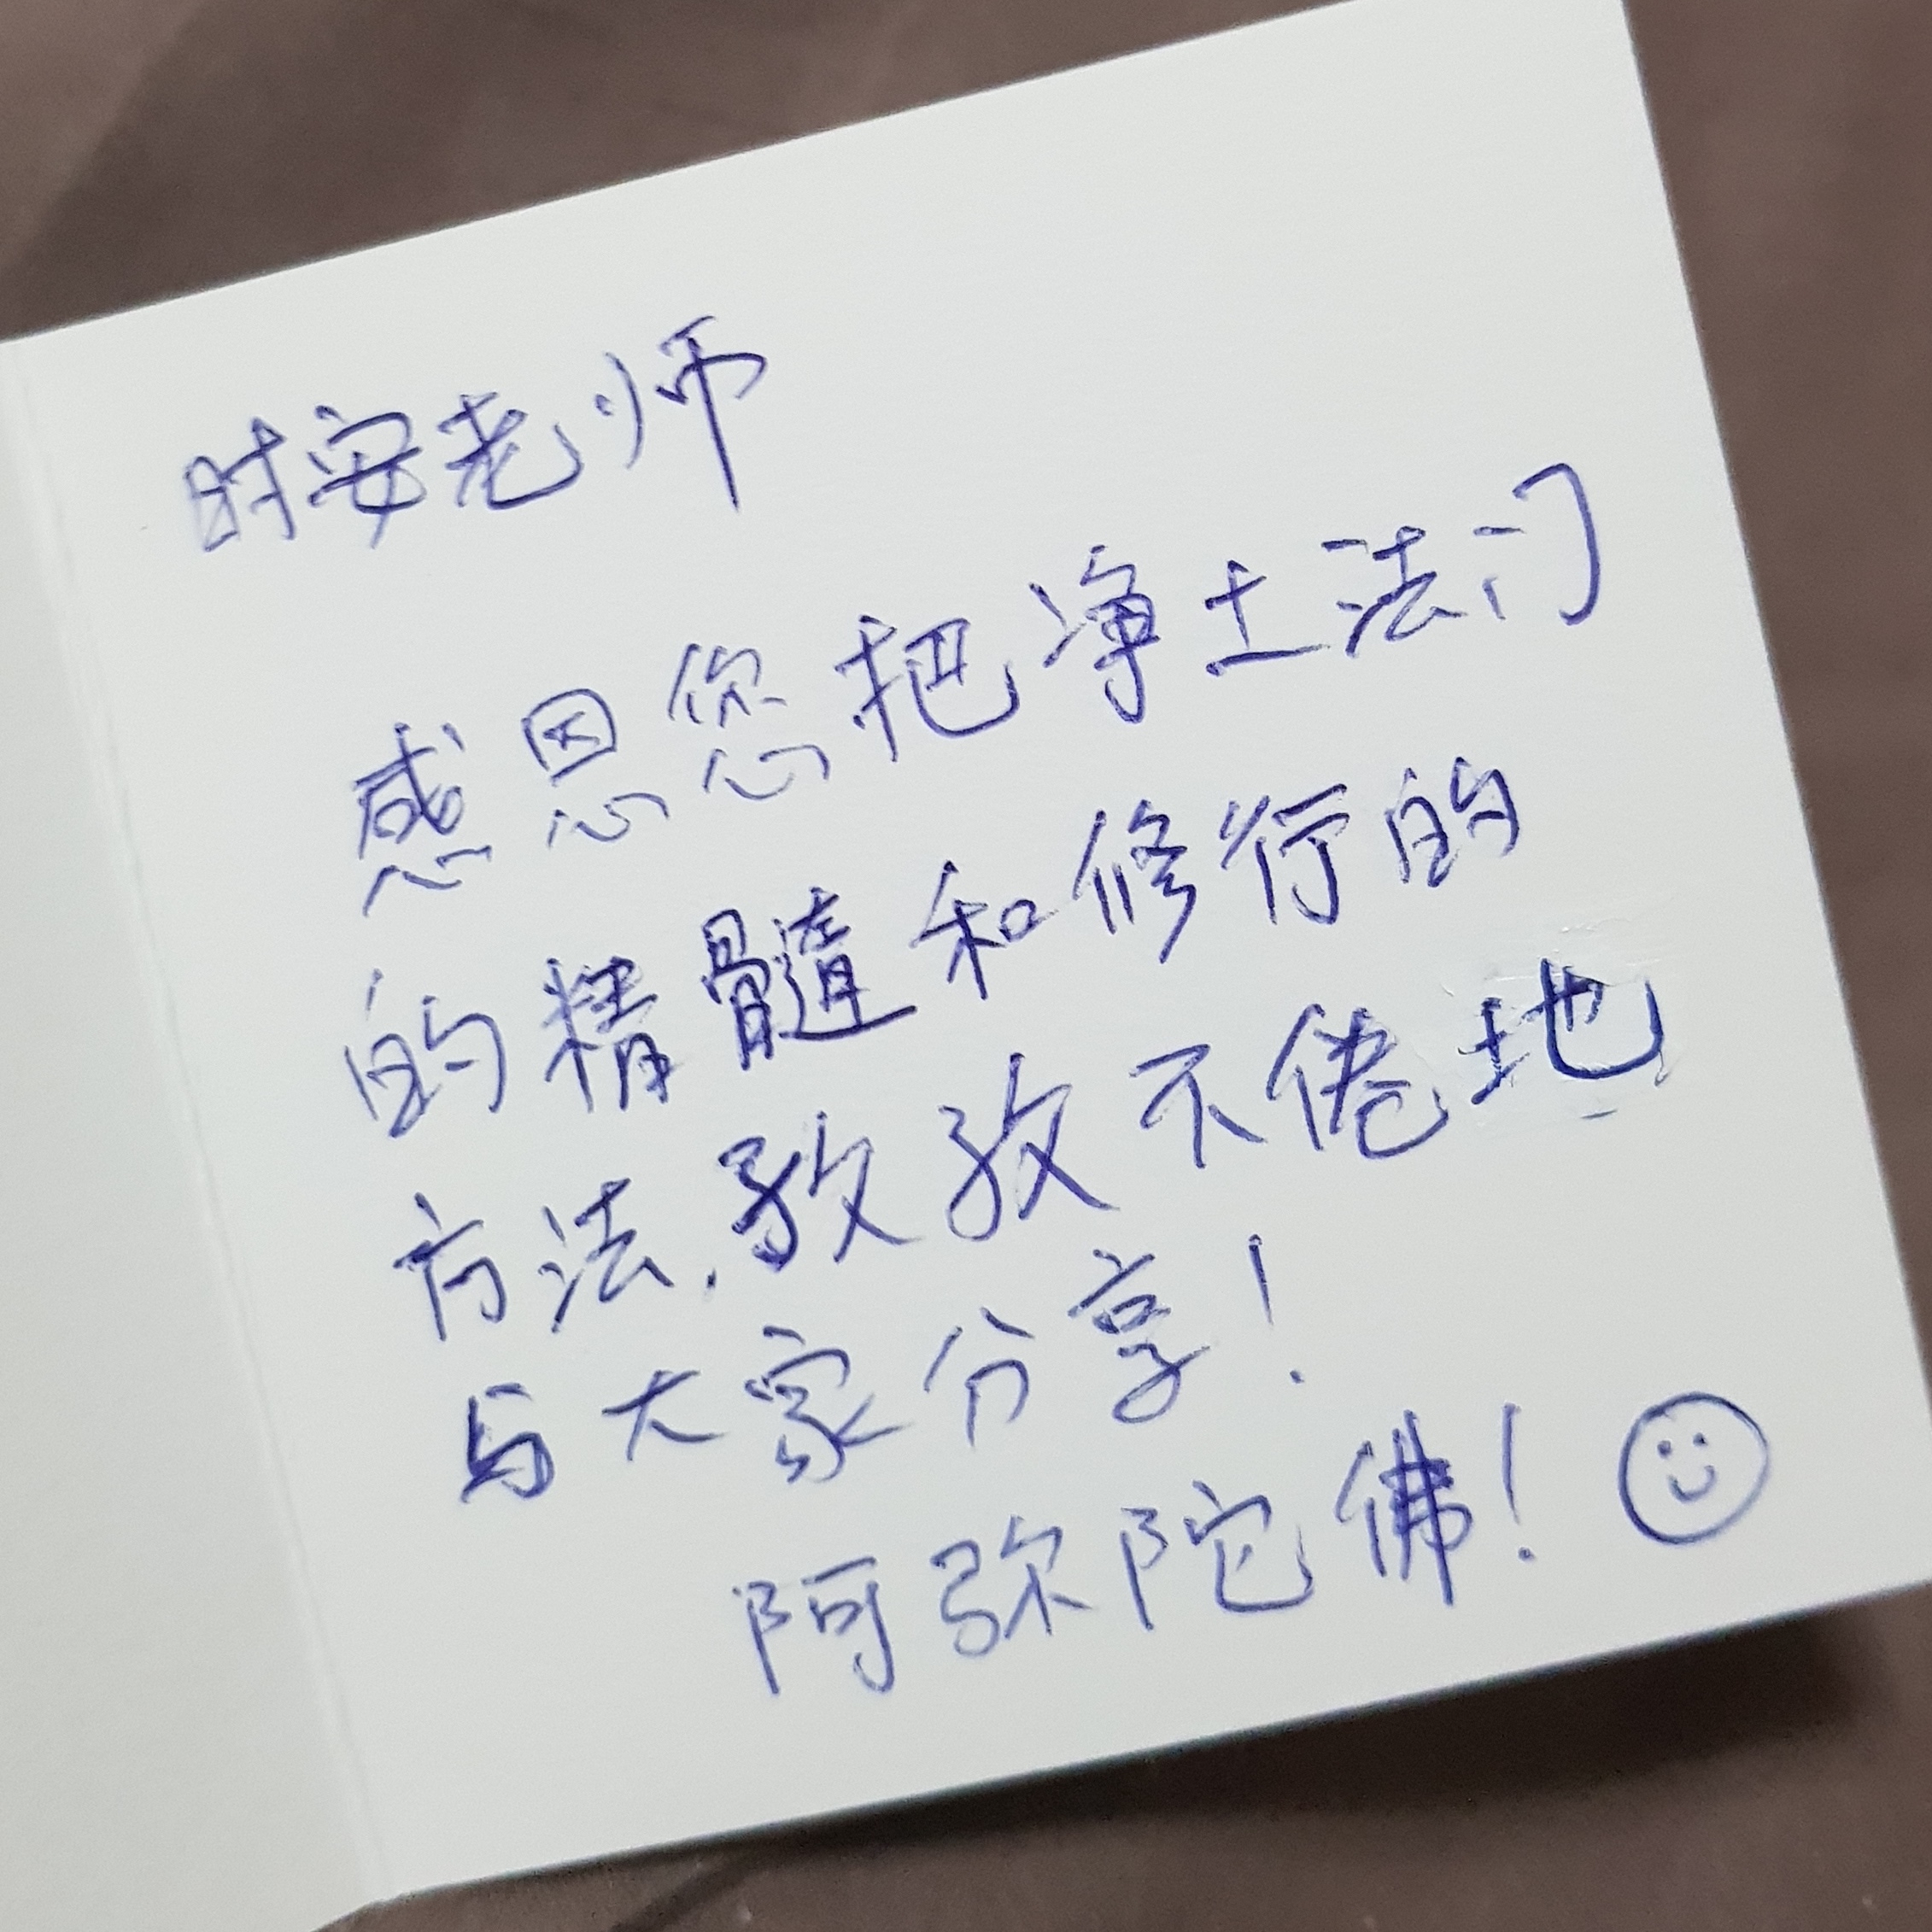 时安老师
感恩您把净土法门
的精髓和修行的
方法,孜孜不倦地
与大家分享!
阿弥陀佛!